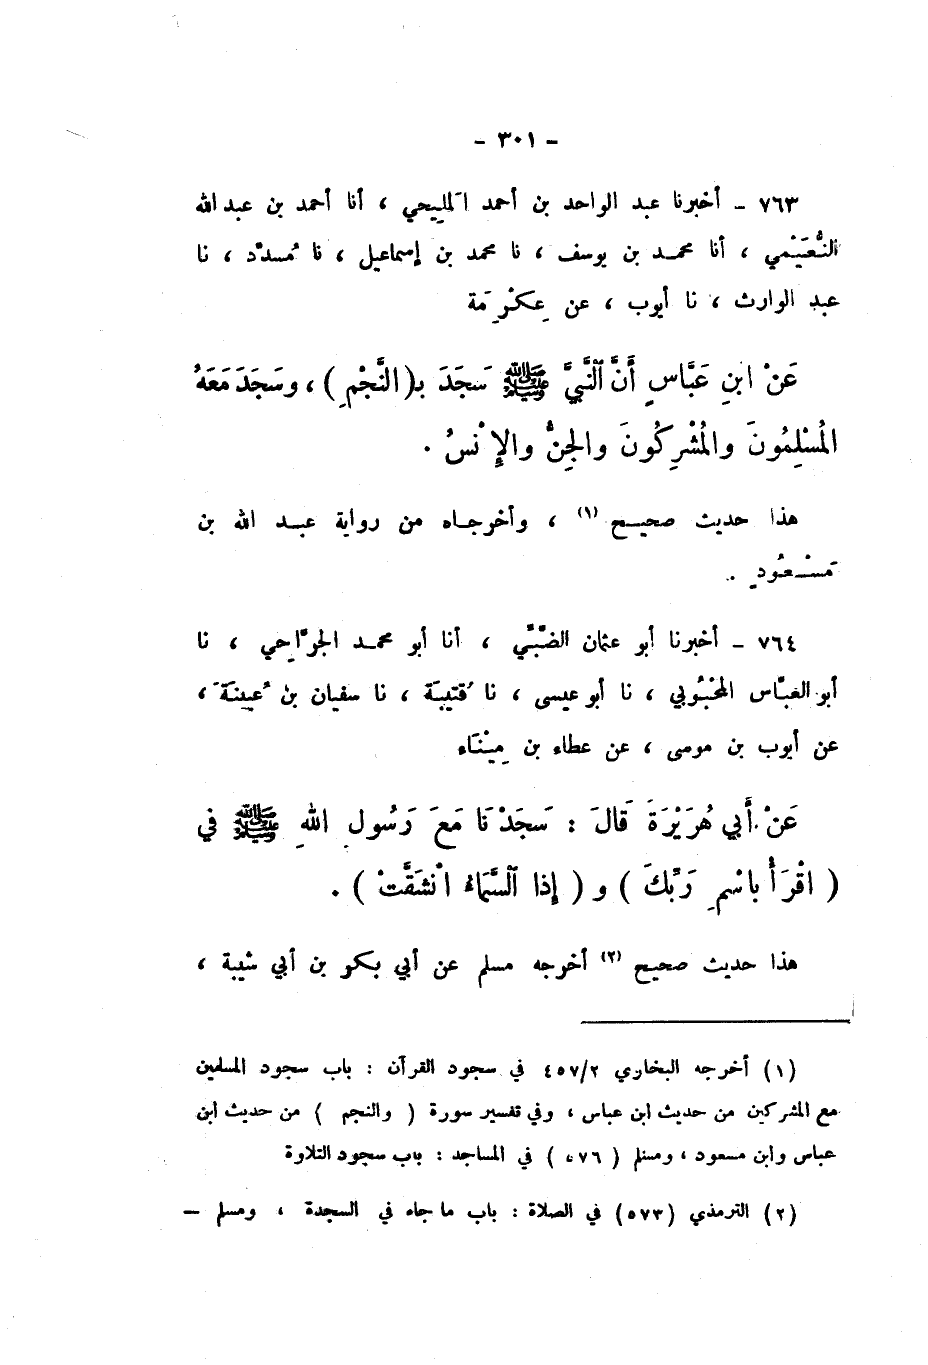 - ٣٠١ -
٧٦٣ - أخبرنا عبد الواحد بن أحمد المَلِيحي ، أنا أحمد بن عبد الله
النُّعَيْمي ، أنا محمد بن يوسف ، نا محمد بن إسماعيل ، نا مُسدَّد ، نا
عبد الوارث ، نا أيوب ، عن عِكْرِمَة
عَنْ ابنِ عَبَّاسٍ أَنَّ ٱلنَّبِيَّ ﷺ سَجَدَ بـ(النَّجْمِ) ، وسَجَدَ مَعَهُ
المُسْلِمُونَ والمُشْرِكُونَ والجِنُّ والإِنْسُ .
هذا حديث صحيح (١) ، وأخرجاه من رواية عبد الله بن
مَسْعُودٍ .
٧٦٤ - أخبرنا أبو عثمان الضَّبِّي ، أنا أبو محمد الجرَّاحِي ، نا
أبو العبَّاس المَحْبُوبي ، نا أبو عيسى ، نا قُتيبَة ، نا سفيان بن عُيينَة ،
عن أيوب بن موسى ، عن عطاء بن مِيْنَاء
عَنْ أَبي هُرَيْرَةَ قَالَ : سَجَدْنَا مَعَ رَسُولِ اللهِ ﷺ في
( اقْرَأْ باسْمِ رَبِّكَ ) و ( إذا ٱلسَّمَاءُ انْشَقَّتْ ) .
هذا حديث صحيح (٢) أخرجه مسلم عن أبي بكر بن أبي شيبة ،
(١) أخرجه البخاري ٤٥٧/٢ في سجود القرآن : باب سجود المسلمين
مع المشركين من حديث ابن عباس ، وفي تفسير سورة ( والنجم ) من حديث ابن
عباس وابن مسعود ، ومسلم ( ٥٧٦ ) في المساجد : باب سجود التلاوة
(٢) الترمذي (٥٧٣) في الصلاة : باب ما جاء في السجدة ، ومسلم -